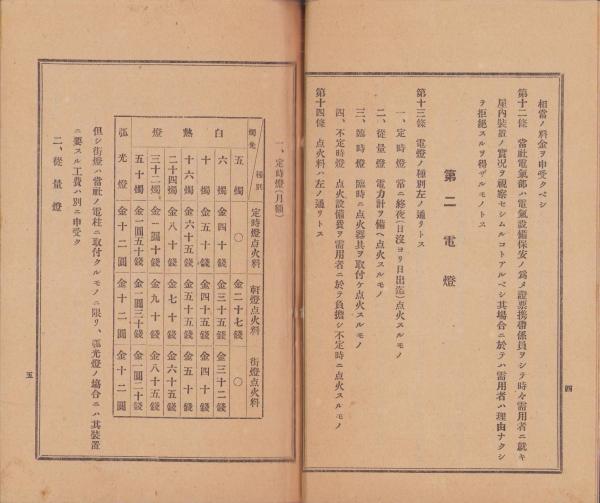 相當ノ料金ヲ申受クベシ
第十二條 當社電氣部ハ電氣設備保安ノ爲メ證票携帶係員ヲシテ時々需用者ニ就キ
屋內裝置ノ實況ヲ視察セシムルコトアルベシ其場合ニ於テハ需用者ハ理由ナクシ
テ拒絕スルヲ得ザルモノトス
第二 電燈
第十三條 電燈ノ種別左ノ通リトス
一、定時燈 常ニ終夜(日沒ヨリ日出迄)点火スルモノ
二、從量燈 電力計ヲ備ヘ点火スルモノ
三、臨時燈 臨時ニ点火器具ヲ取付ケ点火スルモノ
四、不定時燈 点火設備費ヲ需用者ニ於テ負擔シ不定時ニ点火スルモノ
第十四條 点火料ハ左ノ通リトス
四
一、定時燈(月額)
燭光 種別 定時燈点火料 軒燈点火料 街燈点火料
白熱燈
五燭 〇 金二十七錢 〇
六燭 金四十錢 金三十五錢 金三十二錢
十燭 金五十錢 金四十五錢 金四十錢
十六燭 金六十五錢 金五十五錢 金五十錢
二十四燭 金八十錢 金七十錢 金六十五錢
三十二燭 金一圓十錢 金九十錢 金八十五錢
五十燭 金一圓五十錢 金一圓三十錢 金一圓二十錢
弧光燈 金十二圓 金十二圓 金十二圓
但シ街燈ハ當社ノ電柱ニ取付クルモノニ限リ、弧光燈ノ塲合ニハ其裝置
ニ要スル工費ハ別ニ申受ク
二、從量燈
五